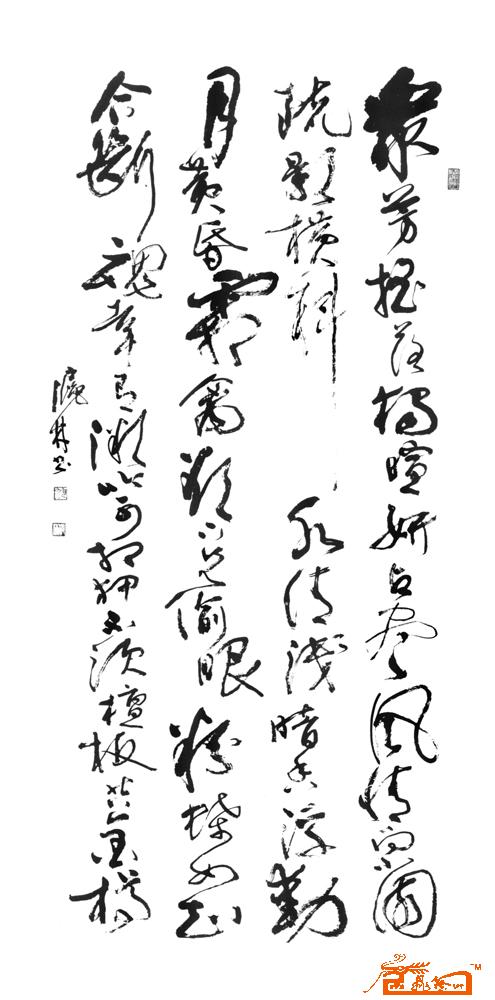 衆芳摇落獨暄妍占盡風情向小園
疏影橫斜水清淺暗香浮動
月黄昏霜禽欲下先偷眼粉蝶如知
合斷魂幸有微吟可相狎不須檀板共金樽
林书